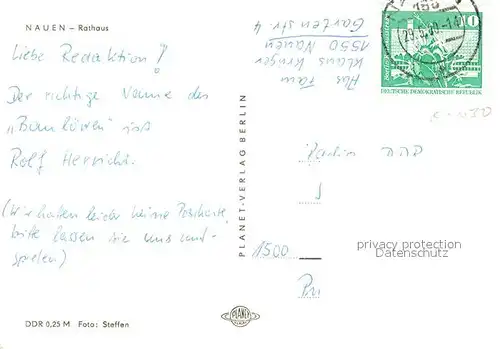 NAUEN – Rathaus
Liebe Redaktion!
Der richtige Name des
„Baulöwen" ist
Rolf Herricht.
(Wir haben leider keine Postkarte,
bitte lassen sie uns mit-
spielen)
DDR 0,25 M Foto: Steffen
PLANET-VERLAG BERLIN
PLANET
Klaus Krüger
1550 Nauen
Gartenstr 4
155
DEUTSCHE DEMOKRATISCHE REPUBLIK
10
Berlin DDR
1500
privacy protection
Datenschutz